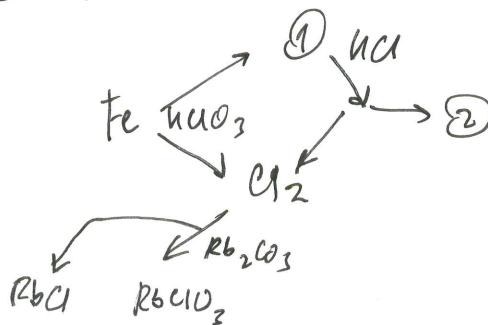 ① HCl
Fe HClO3
②
Cl2
Rb2CO3
RbCl RbClO3